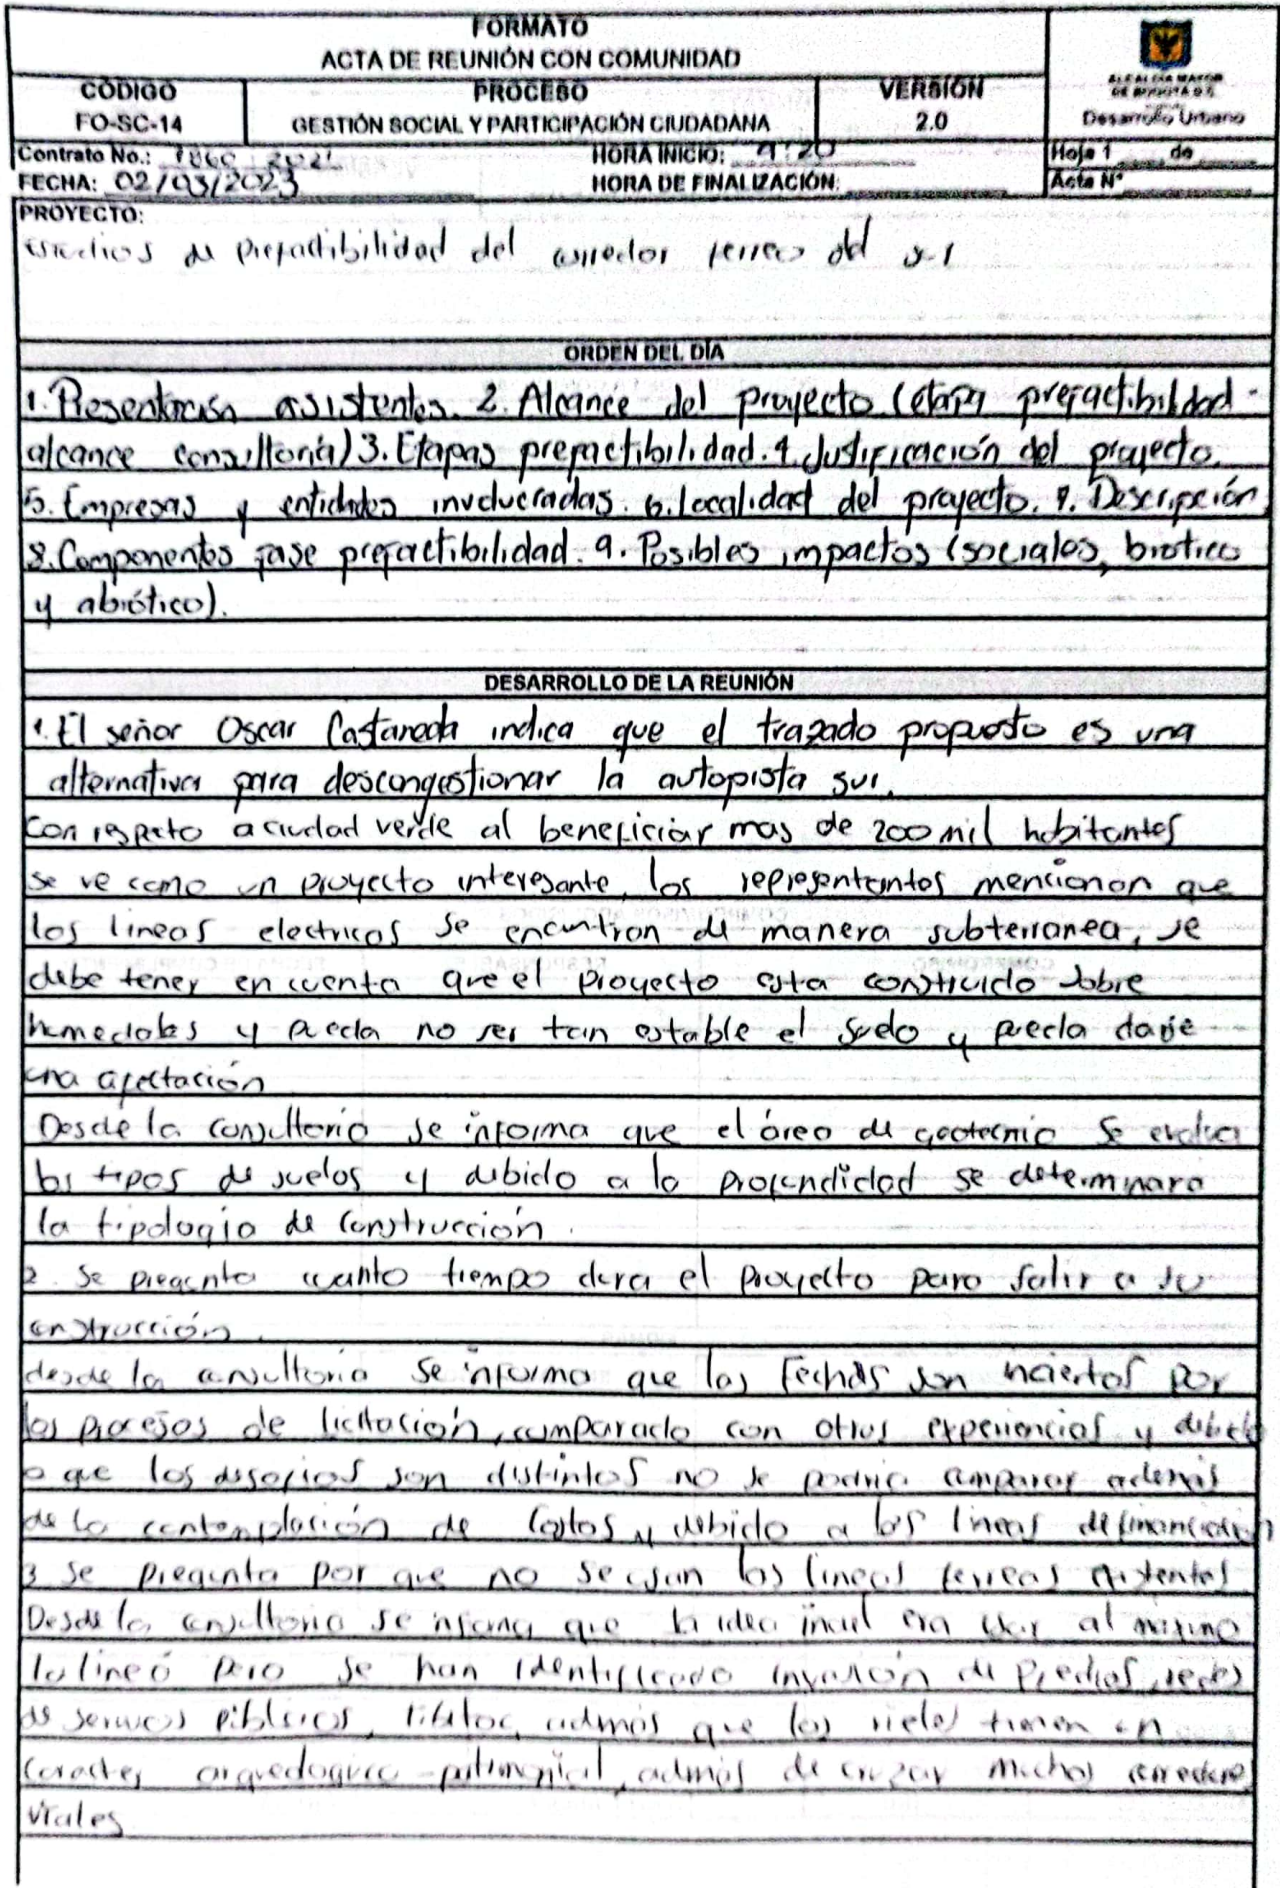 FORMATO
ACTA DE REUNIÓN CON COMUNIDAD
CÓDIGO
FO-SC-14
PROCESO
GESTIÓN SOCIAL Y PARTICIPACIÓN CIUDADANA
VERSIÓN
2.0
ALCALDIA MAYOR
DE BOGOTÁ D.C.
Desarrollo Urbano
Contrato No.: 2021
HORA INICIO: 9:20
Hoja 1 de
FECHA: 02/03/2023
HORA DE FINALIZACIÓN:
Acta N°
PROYECTO:
estudios de prefactibilidad del corredor ferreo del sur
ORDEN DEL DÍA
1. Presentación asistentes. 2. Alcance del proyecto (etapa prefactibilidad -
alcance consultoría) 3. Etapas prefactibilidad. 4. Justificación del proyecto.
5. Empresas y entidades involucradas. 6. Localidad del proyecto. 7. Descripción
8. Componentes fase prefactibilidad. 9. Posibles impactos (sociales, biotico
y abiótico).
DESARROLLO DE LA REUNIÓN
1. El señor Oscar Castaneda indica que el trazado propuesto es una
alternativa para descongestionar la autopista sur.
Con respecto a ciudad verde al beneficiar mas de 200 mil habitantes
se ve como un proyecto interesante, los representantes mencionan que
las lineas electricas se encuntran de manera subterranea, se
debe tener en cuenta que el proyecto esta construido sobre
humedales y pueda no ser tan estable el suelo y pueda darse
una afectación
Desde la consultoria se informa que el área de geotecnia se evalua
los tipos de suelos y debido a la profundidad se determinara
la tipologia de construcción.
2. Se pregunta cuanto tiempo dura el proyecto para salir a su
construcción.
desde la consultoria se informa que las fechas son inciertas por
los procesos de licitación, comparado con otras experiencias y debido
a que los desafios son distintos no se podria comparar ademas
de la contemplación de costos y debido a las lineas de financiación
3 Se pregunta por que no se usan las lineas ferreas existentes
Desde la consultoria se informa que la idea inicial era usar al maximo
la linea pero se han identificado invasión de predios, redes
de servicios públicos, admás que los rieles tienen un
caracter arqueologico - patrimonial, admás de cruzar muchos corredores
viales